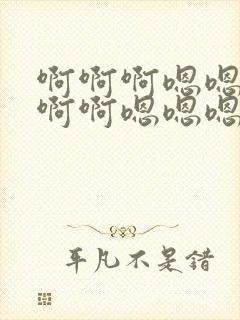 啊啊啊嗯嗯
啊啊嗯嗯嗯
平凡不是错